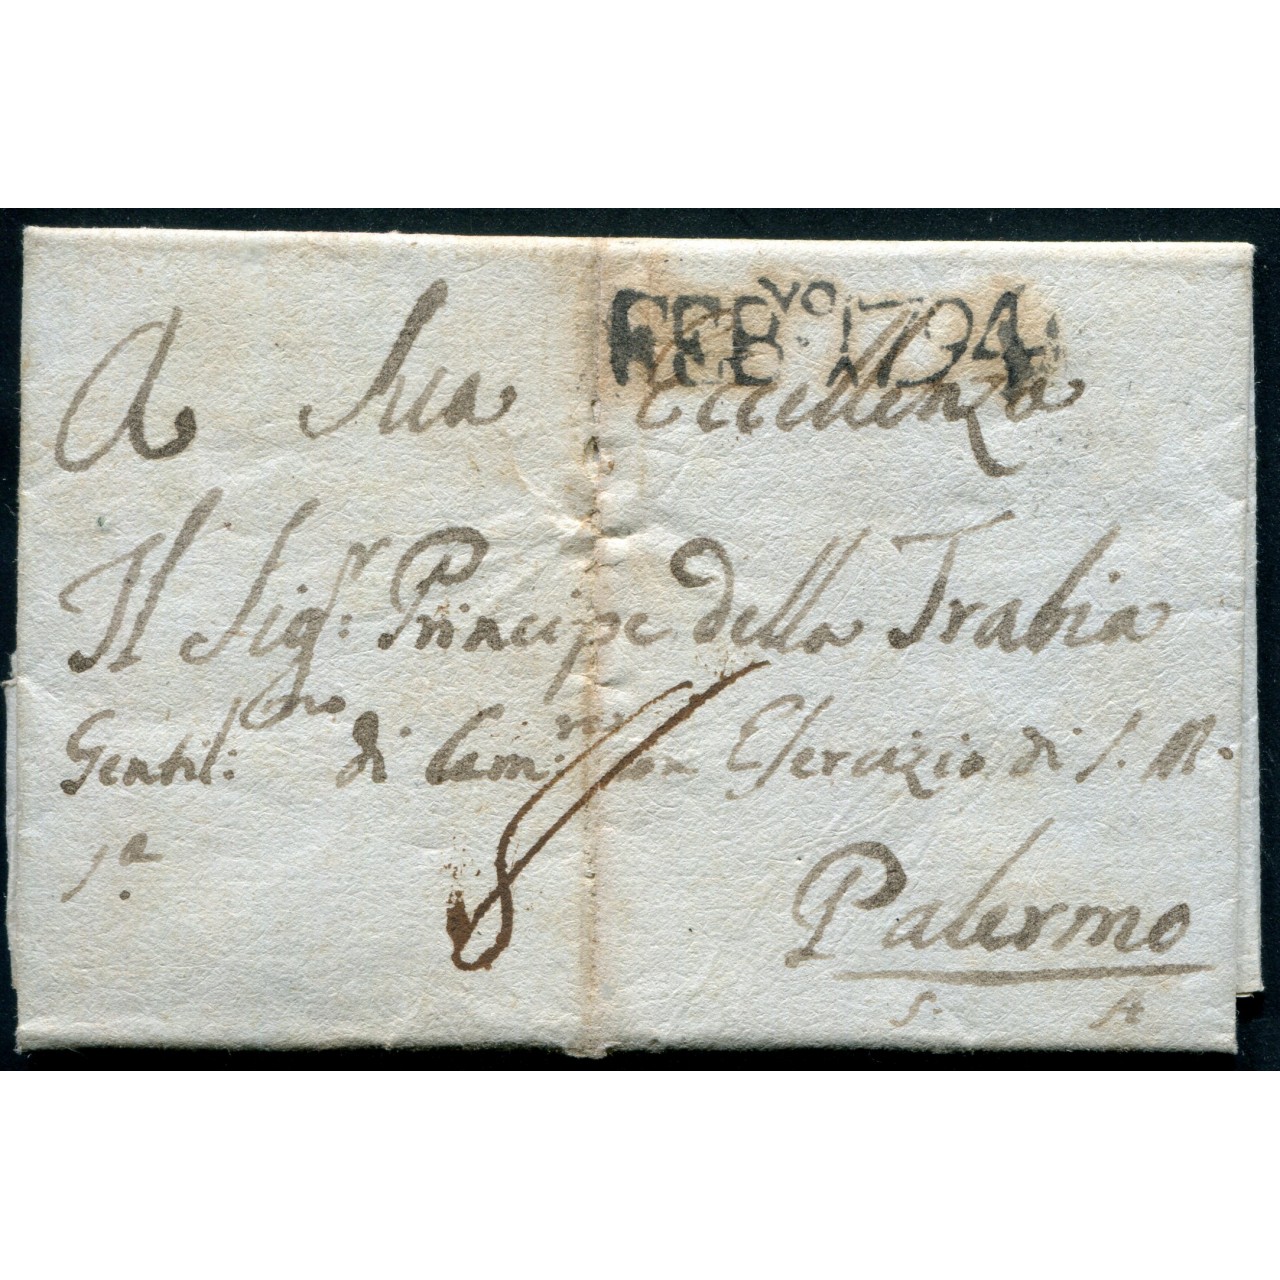 FEBʳᵒ. 1794
A Sua Eccellenza
Il Sigʳ: Principe della Trabia
Gentil:ᵐᵒ di Cam:ʳᵃ con Esercizio di S. M.
8
Palermo